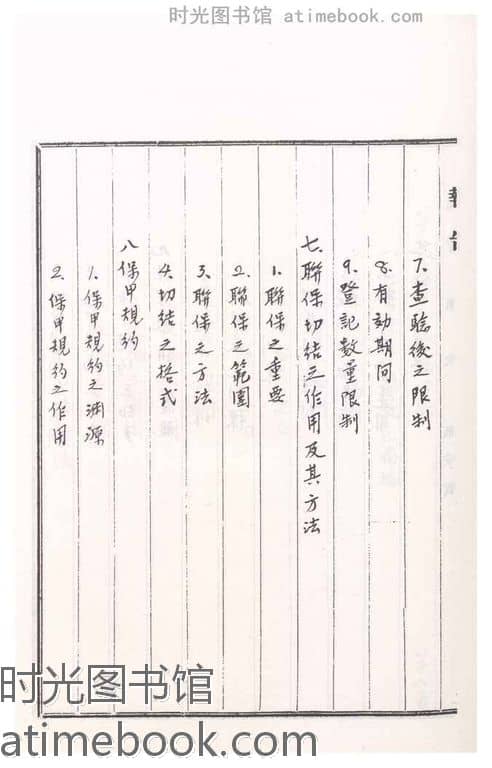 时光图书馆 atimebook.com
7.查驗後之限制
8.有効期间
9.登記数量限制
七.聯保切结之作用及其方法
1.聯保之重要
2.聯保之範圍
3.聯保之方法
4.切结之格式
八保甲規約
1.保甲規約之淵源
2.保甲規約之作用
时光图书馆
atimebook.com